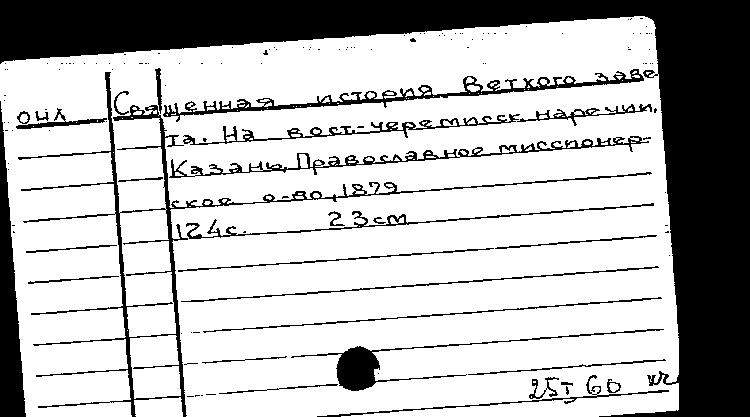 ОИХ Священная история Ветхого заве
та. На вост.-черемисск. наречии.
Казань, Православное миссионер-
ское о-во, 1879
124с. 23см
25I 60